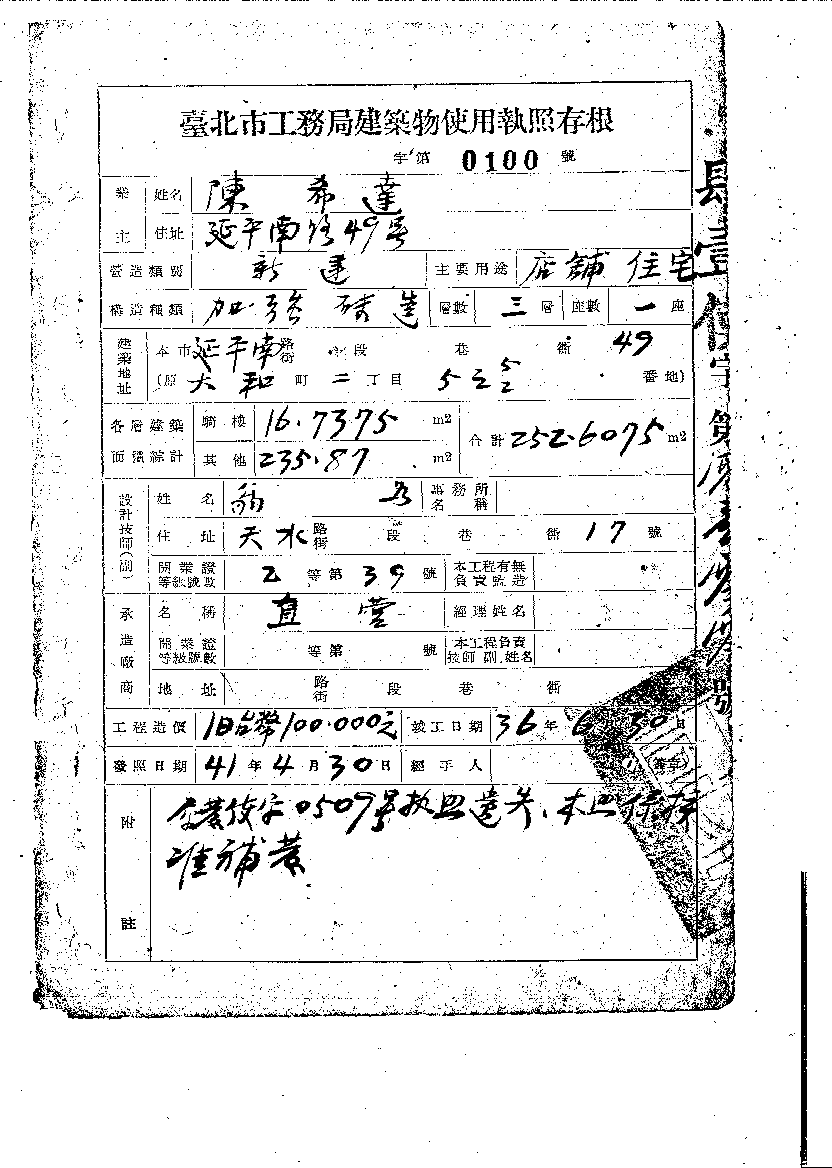 臺北市工務局建築物使用執照存根
字第 0100 號
業主 姓名 陳希達
住址 延平南路49號
營造類別 新建 主要用途 店舖住宅
構造種類 加強磚造 層數 三層 座數 一座
建築地址 本市延平南路街 段 巷 衖 49
(原大和町二丁目 5之2 番地)
各層建築面積綜計 騎樓 16.7375 m2 合計 252.6075 m2
其他 235.87 m2
設計技師(副) 姓名 事務所名稱
住址 天水路街 段 巷 衖 17 號
開業證等級號數 乙等第 39 號 本工程有無負責監造
承造廠商 名稱 自營 經理姓名
開業證等級號數 等第 號 本工程負責技師副姓名
地址 路街 段 巷 衖
工程造價 旧台幣100.000元 竣工日期 36年6月30日
發照日期 41年4月30日 經手人 (簽章)
附註 字0509號执照遺失、本照
准補發